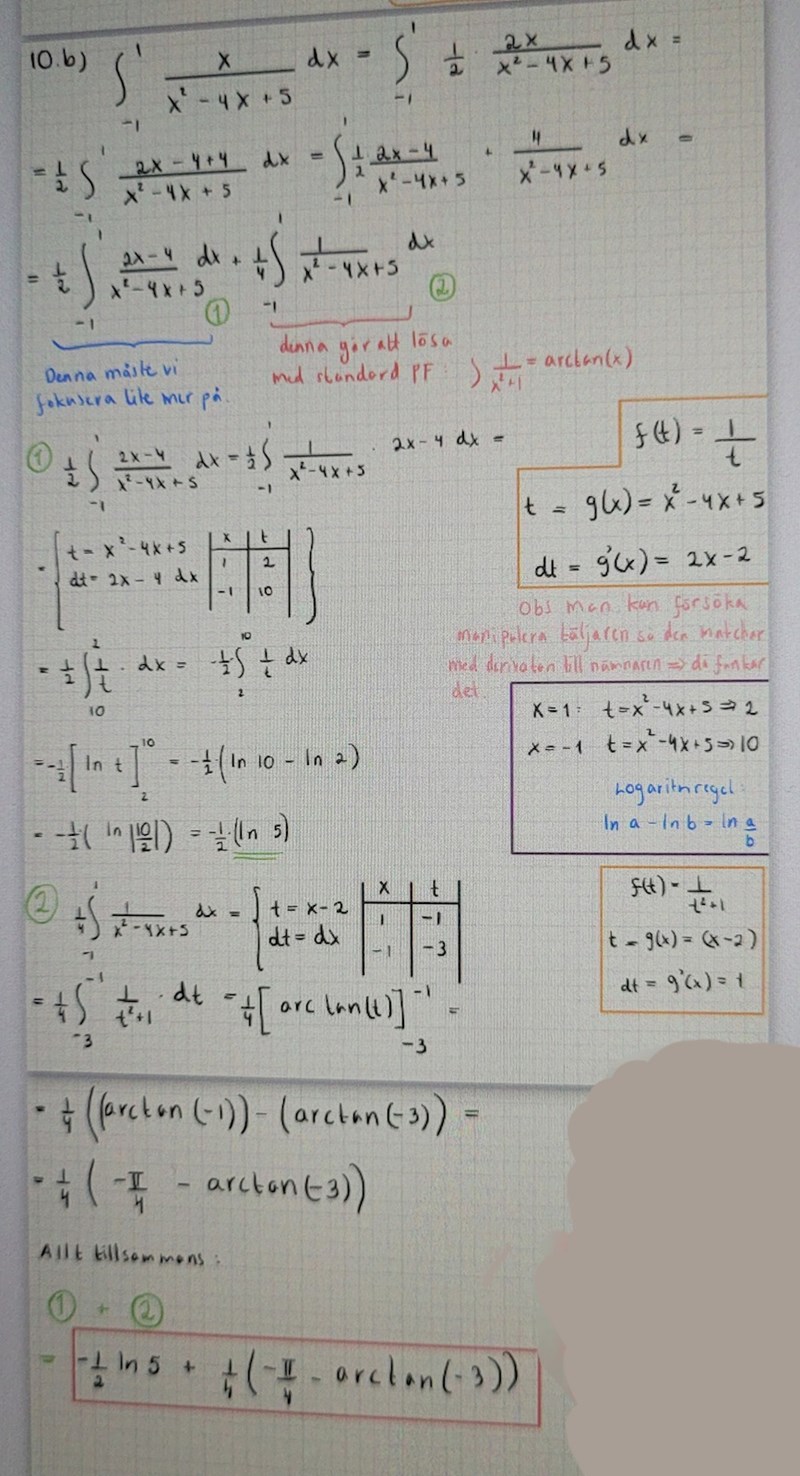 10.b) ∫₋₁¹ x/(x² - 4x + 5) dx = ∫₋₁¹ 1/2 · 2x/(x² - 4x + 5) dx =
= 1/2 ∫₋₁¹ (2x - 4 + 4)/(x² - 4x + 5) dx = ∫₋₁¹ 1/2 (2x - 4)/(x² - 4x + 5) + 4/(x² - 4x + 5) dx =
= 1/2 ∫₋₁¹ (2x - 4)/(x² - 4x + 5) dx + 1/4 ∫₋₁¹ 1/(x² - 4x + 5) dx
① ②
Denna måste vi
fokusera lite mer på.
denna går att lösa
med standard PF: ∫ 1/(x²+1) = arctan(x)
① 1/2 ∫₋₁¹ (2x - 4)/(x² - 4x + 5) dx = 1/2 ∫₋₁¹ 1/(x² - 4x + 5) · 2x - 4 dx =
f(t) = 1/t
t = g(x) = x² - 4x + 5
dt = g'(x) = 2x - 2
= { t = x² - 4x + 5 | x | t |
dt = 2x - 4 dx | 1 | 2 |
| -1 | 10 | }
Obs man kan försöka
manipulera täljaren så den matchar
med derivatan till nämnaren ⇒ då funkar
det.
= 1/2 ∫₁₀² 1/t · dx = -1/2 ∫₂¹⁰ 1/t dx
x = 1: t = x² - 4x + 5 ⇒ 2
x = -1 t = x² - 4x + 5 ⇒ 10
Logaritmregel:
ln a - ln b = ln a/b
= -1/2 [ln t]₂¹⁰ = -1/2 (ln 10 - ln 2)
= -1/2 (ln |10/2|) = -1/2 · (ln 5)
② 1/4 ∫₋₁¹ 1/(x² - 4x + 5) dx = { t = x - 2 | x | t |
dt = dx | 1 | -1 |
| -1 | -3 |
f(t) = 1/(t²+1)
t = g(x) = (x - 2)
dt = g'(x) = 1
= 1/4 ∫₋₃⁻¹ 1/(t²+1) · dt = 1/4 [arctan(t)]₋₃⁻¹ =
= 1/4 ((arctan(-1)) - (arctan(-3)) =
= 1/4 (-π/4 - arctan(-3))
Allt tillsammans:
① + ②
= -1/2 ln 5 + 1/4 (-π/4 - arctan(-3))